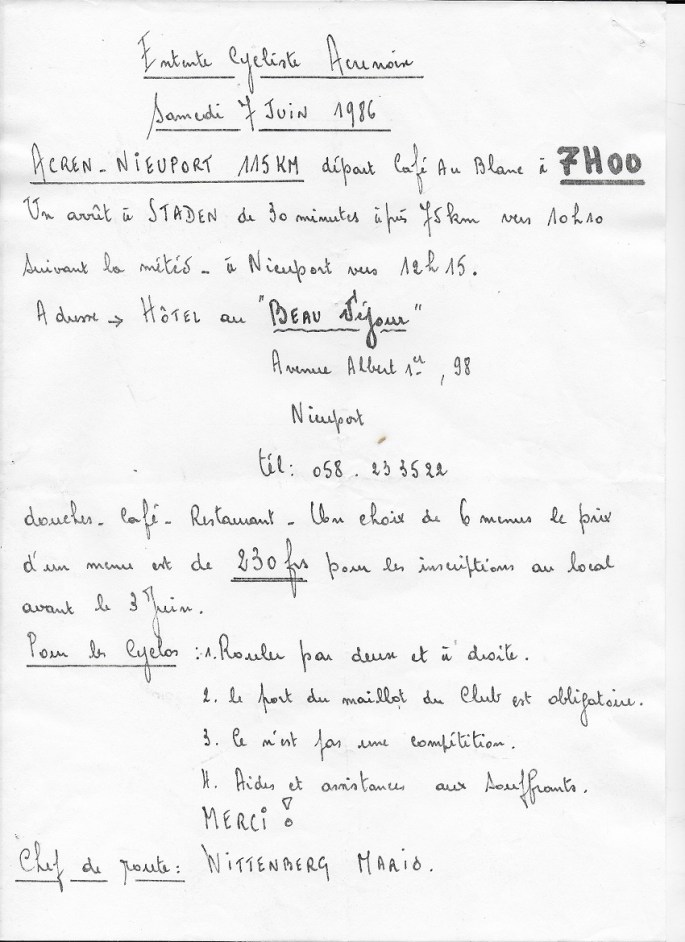 Entente Cycliste Acrenoise
Samedi 7 Juin 1986
ACREN - NIEUPORT 115KM départ Café Au Blanc à 7H00
Un arrêt à STADEN de 30 minutes àprès 75km vers 10h10
suivant la météo - à Nieuport vers 12h15.
Adresse → HÔTEL au "BEAU Séjour"
Avenue Albert 1er, 98
Nieuport
tél: 058.233522
douches - Café - Restaurant - Un choix de 6 menus le prix
d'un menu est de 230 frs pour les inscriptions au local
avant le 3 Juin.
Pour les Cyclos : 1. Rouler par deux et à droite.
2. le port du maillot du Club est obligatoire.
3. Ce n'est pas une compétition.
4. Aides et assistances aux souffrants.
MERCI !
Chef de route: WITTENBERG MARIO.